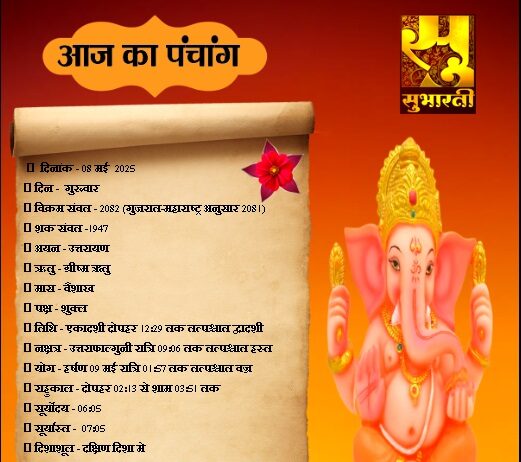 आज का पंचांग
सुभारती
दिनाक - 08 मई 2025
दिन - गुरुवार
विक्रम संवत - 2082 (गुजरात-महाराष्ट्र अनुसार 2081)
शक संवत -1947
अयन - उत्तरायण
ऋतु - ग्रीष्म ऋतु
मास - वैशाख
पक्ष - शुक्ल
तिथि - एकादशी दोपहर 12:29 तक तत्पश्चात द्वादशी
नक्षत्र - उत्तराफाल्गुनी रात्रि 09:06 तक तत्पश्चात हस्त
योग - हर्षण 09 मई रात्रि 01:57 तक तत्पश्चात वज्र
राहुकाल - दोपहर 02:13 से शाम 03:51 तक
सूर्योदय - 06:05
सूर्यास्त - 07:05
दिशाशूल - दक्षिण दिशा मे